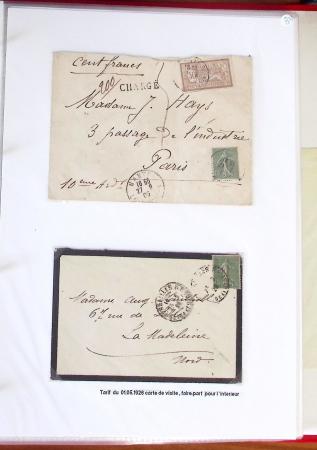 Cent francs
200
CHARGÉ
Madame J. Hays
3 passage de l'industrie
Paris
10ème Ardt
Madame Aug.
67 rue de
La Madeleine
Nord
Tarif du 01.05.1926 carte de visite, faire.part pour l'interieur